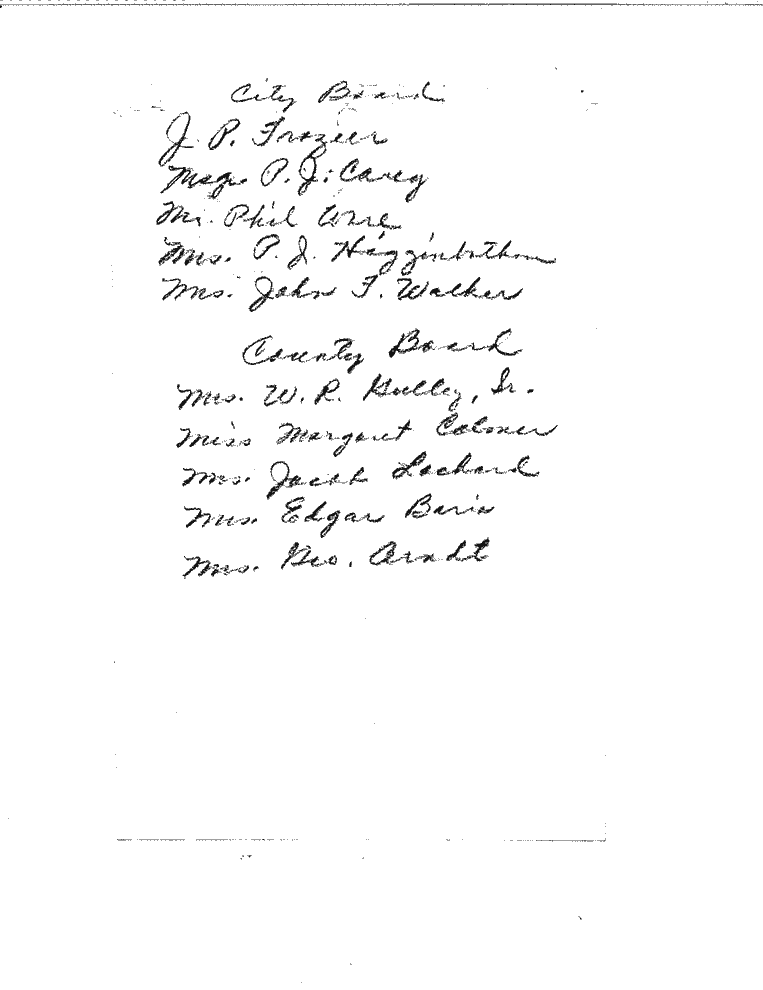 City Board
J. P. Frazier
Msgr. P. J. Carey
Mr. Phil Ware
Mrs. P. J. Higginbotham
Mrs. John F. Walker
County Board
Mrs. W. R. Gulley, Sr.
Miss Margaret Colmer
Mrs. Jacob Lockard
Mrs. Edgar
Mrs. Geo. Arndt